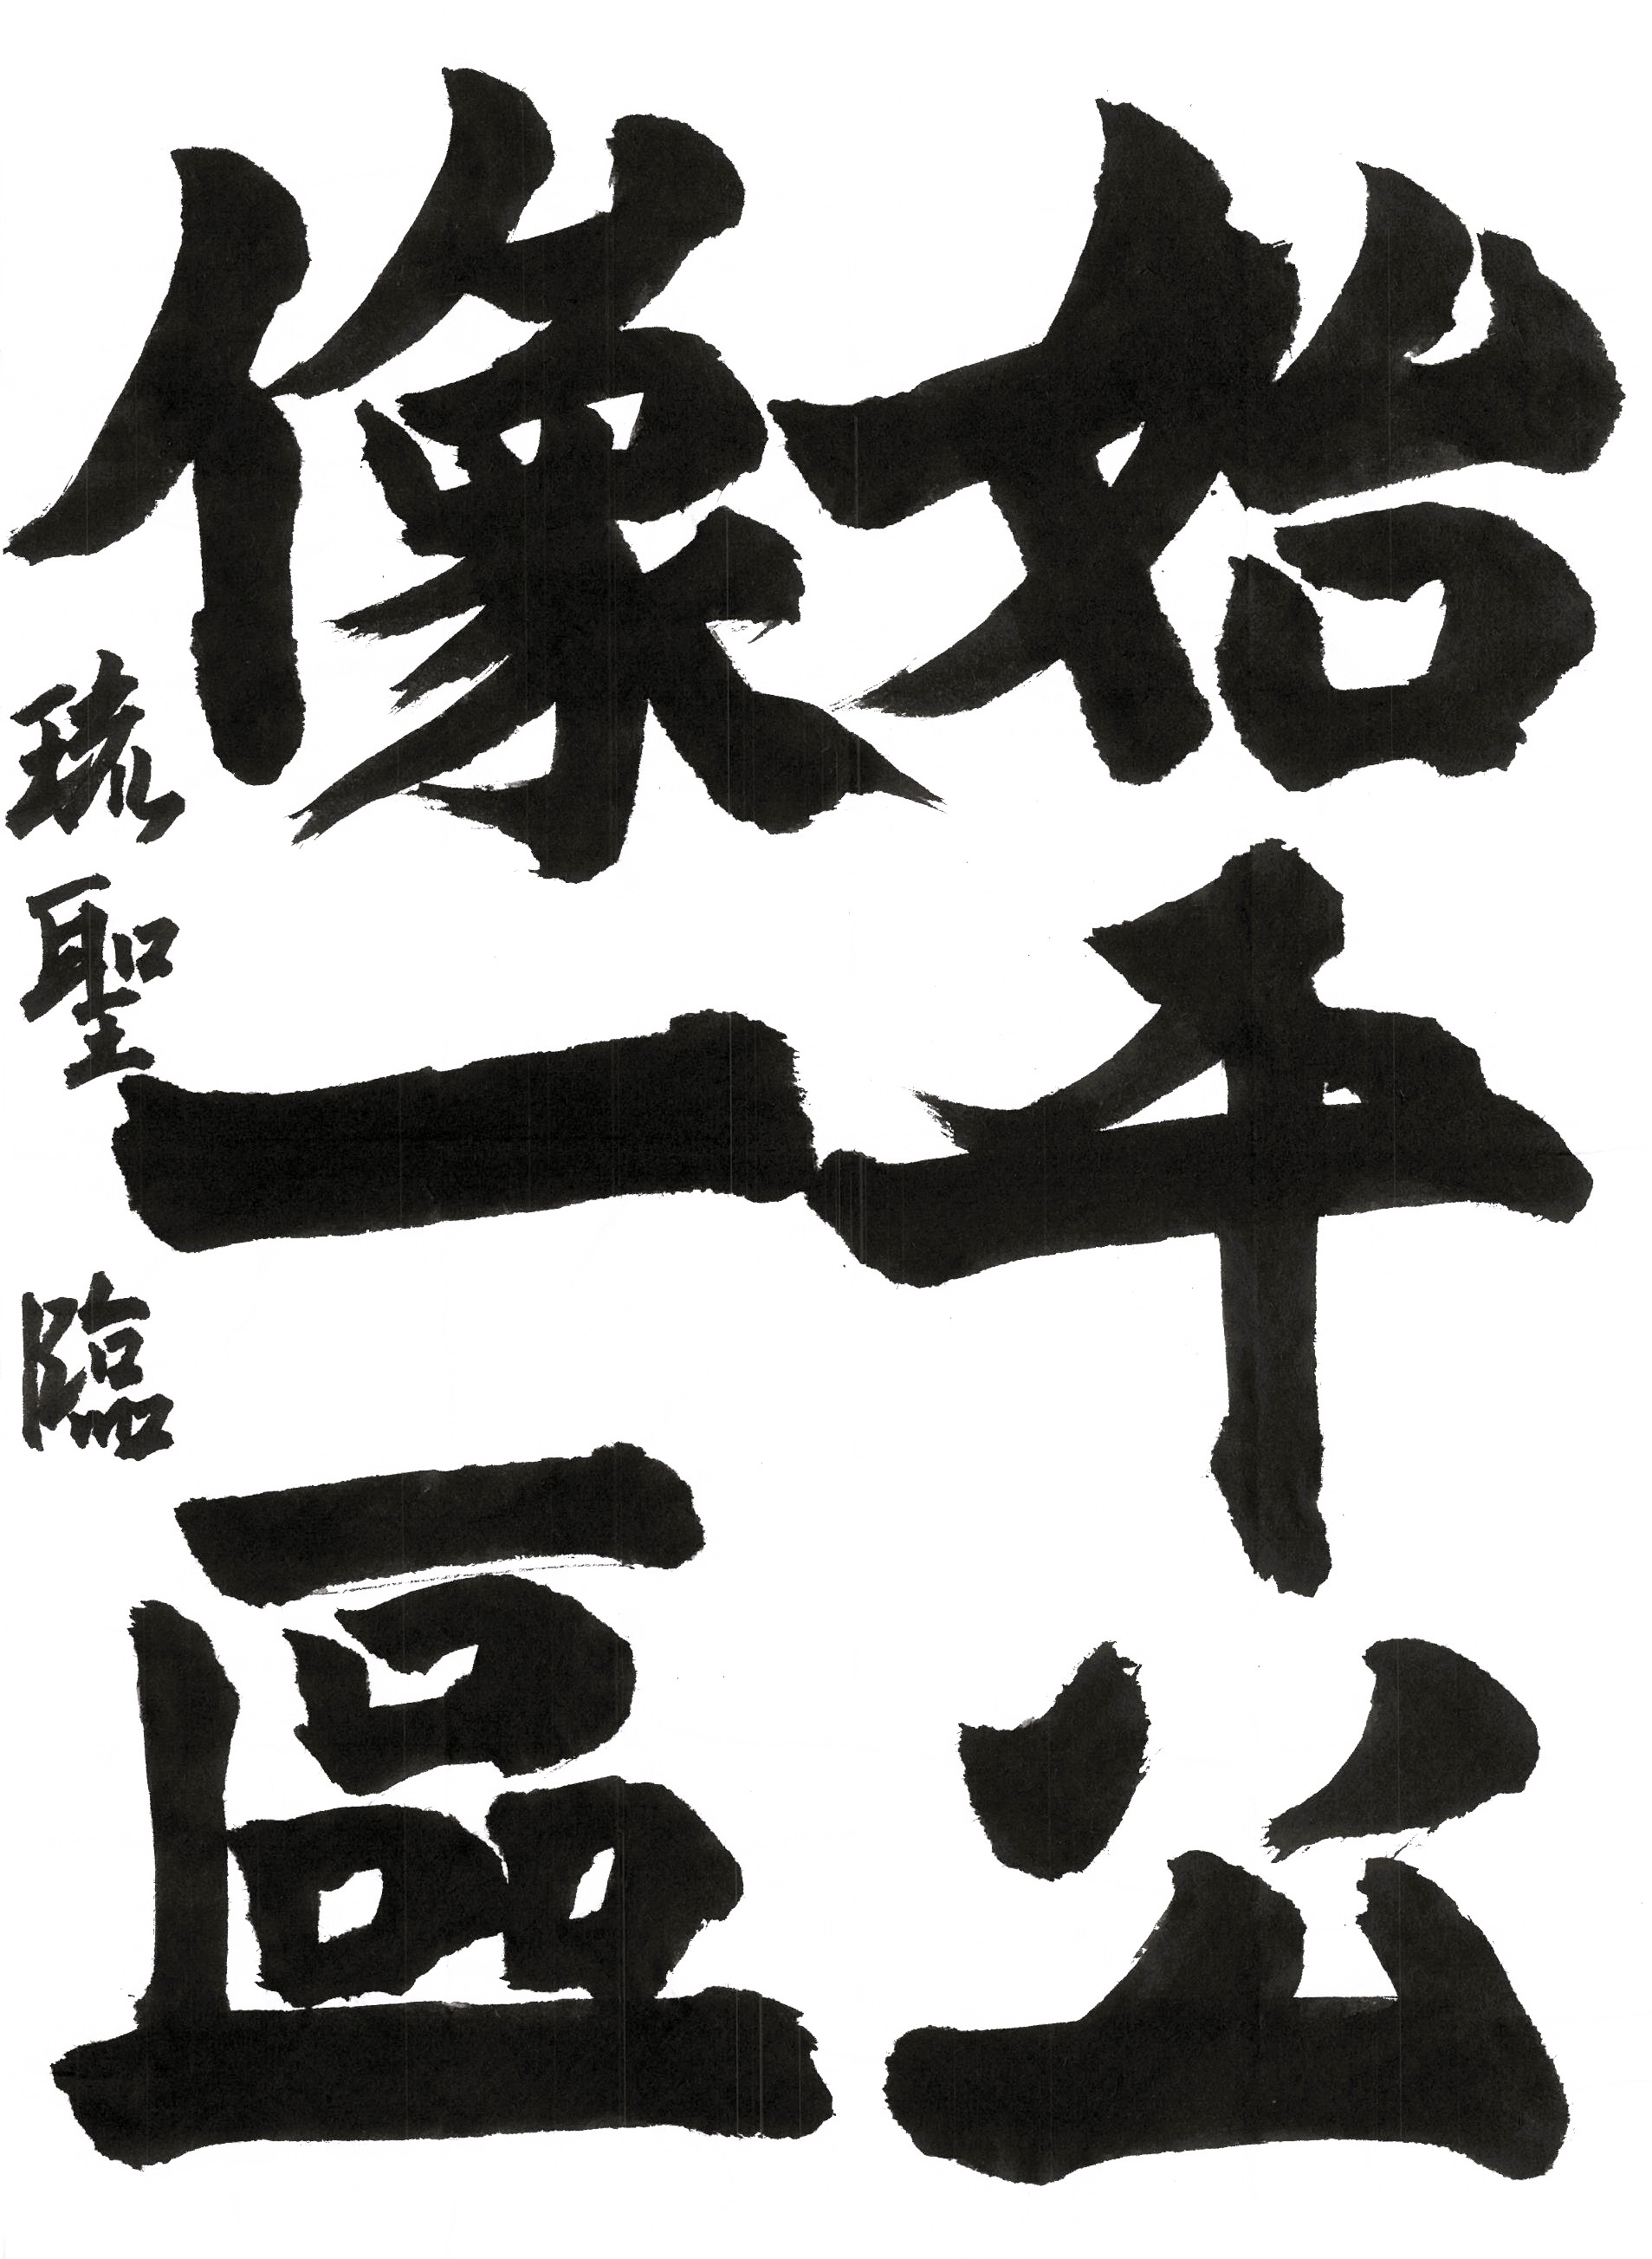 始平公
像一區
琉聖 臨